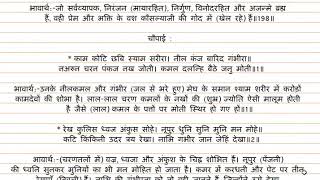 भावार्थ:-जो सर्वव्यापक, निरंजन (मायारहित), निर्गुण, विनोदरहित और अजन्मे ब्रह्म
हैं, वही प्रेम और भक्ति के वश कौसल्याजी की गोद में (खेल रहे) हैं॥198॥
चौपाई :
* काम कोटि छबि स्याम सरीरा। नील कंज बारिद गंभीरा॥
नअरुन चरन पंकज नख जोती। कमल दलन्हि बैठे जनु मोती॥1॥
भावार्थ:-उनके नीलकमल और गंभीर (जल से भरे हुए) मेघ के समान श्याम शरीर में करोड़ों
कामदेवों की शोभा है। लाल-लाल चरण कमलों के नखों की (शुभ्र) ज्योति ऐसी मालूम होती
है जैसे (लाल) कमल के पत्तों पर मोती स्थिर हो गए हों॥1॥
* रेख कुलिस ध्वज अंकुस सोहे। नूपुर धुनि सुनि मुनि मन मोहे॥
कटि किंकिनी उदर त्रय रेखा। नाभि गभीर जान जेहिं देखा॥2॥
भावार्थ:-(चरणतलों में) वज्र, ध्वजा और अंकुश के चिह्न शोभित हैं। नूपुर (पेंजनी)
की ध्वनि सुनकर मुनियों का भी मन मोहित हो जाता है। कमर में करधनी और पेट पर तीन